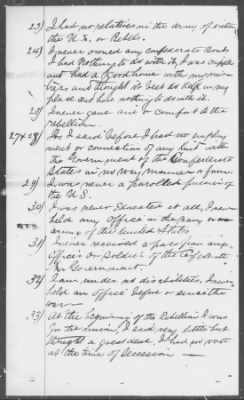 23) I had no relatives in the army of either
the U.S. or Rebels.
24) I never owned any confederate bonds
I had nothing to do with it, I was
and had a good home with my
and thought it best to keep in my
place and have nothing to do with it.
25) I never gave aid or comfort to the
rebellion
27 & 28) As I said before I had no employ
ment or connection of any kind with
the Government of the Confederate
States in no way manner or form.
29) I was never a parolled prisoner of
the U.S.
30) I was never at all, I never
held any office in the navy or
army of the United States
31) I never received a pass from any
officer or soldier of the Confederate
Government.
32) I am under no disabilities. I never
held an office before or since the
war
33) At the beginning of the Rebellion I was
for the union, I said very little but
thought a great deal. I had no vote
at the time of Secession —